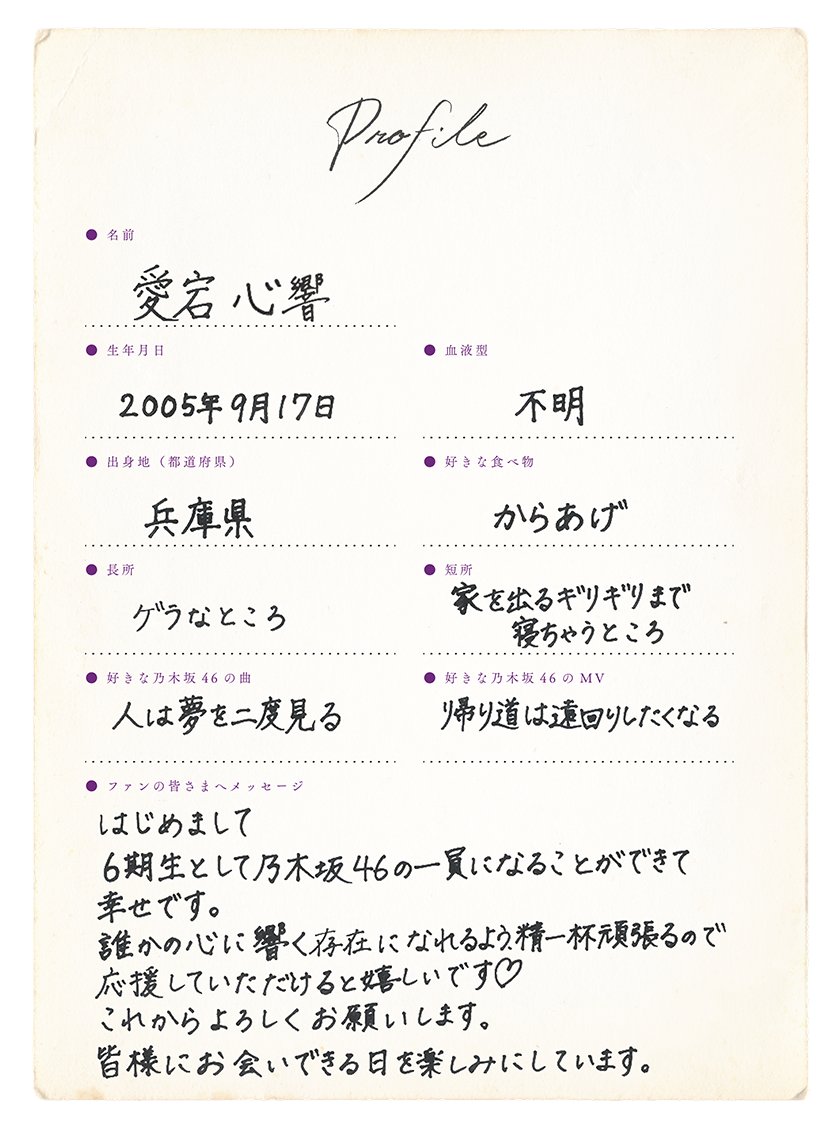 Profile
名前
愛宕 心響
生年月日
2005年9月17日
血液型
不明
出身地（都道府県）
兵庫県
好きな食べ物
からあげ
長所
ゲラなところ
短所
家を出るギリギリまで
寝ちゃうところ
好きな乃木坂46の曲
人は夢を二度見る
好きな乃木坂46のMV
帰り道は遠回りしたくなる
ファンの皆さまへメッセージ
はじめまして
6期生として乃木坂46の一員になることができて
幸せです。
誰かの心に響く存在になれるよう、精一杯頑張るので
応援していただけると嬉しいです♡
これからよろしくお願いします。
皆様にお会いできる日を楽しみにしています。